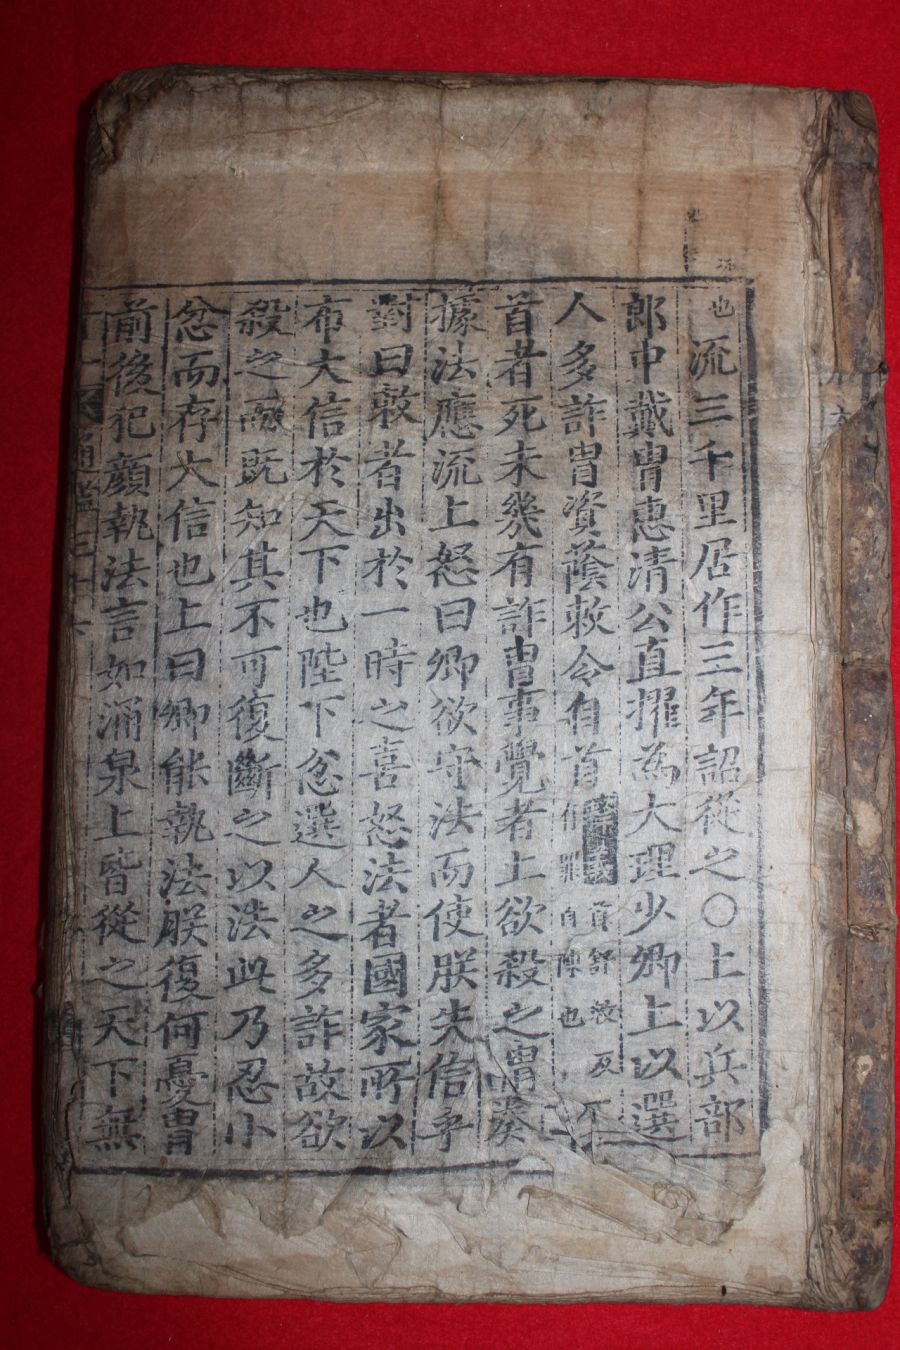 也流三千里居作三年詔從之〇上以兵部
郎中戴胄惠清公直擢為大理少卿上以選
人多詐冒資蔭敕令自首 首舒救反 自陳也 不
首者死未幾有詐冒事覺者上欲殺之胄奏
據法應流上怒曰卿欲守法而使朕失信乎
對曰敕者出於一時之喜怒法者國家所以
布大信於天下也陛下忿選人之多詐故欲
殺之而既知其不可復斷之以法此乃忍小
忿而存大信也上曰卿能執法朕復何憂胄
前後犯顔執法言如涌泉上皆從之天下無
通鑑三十